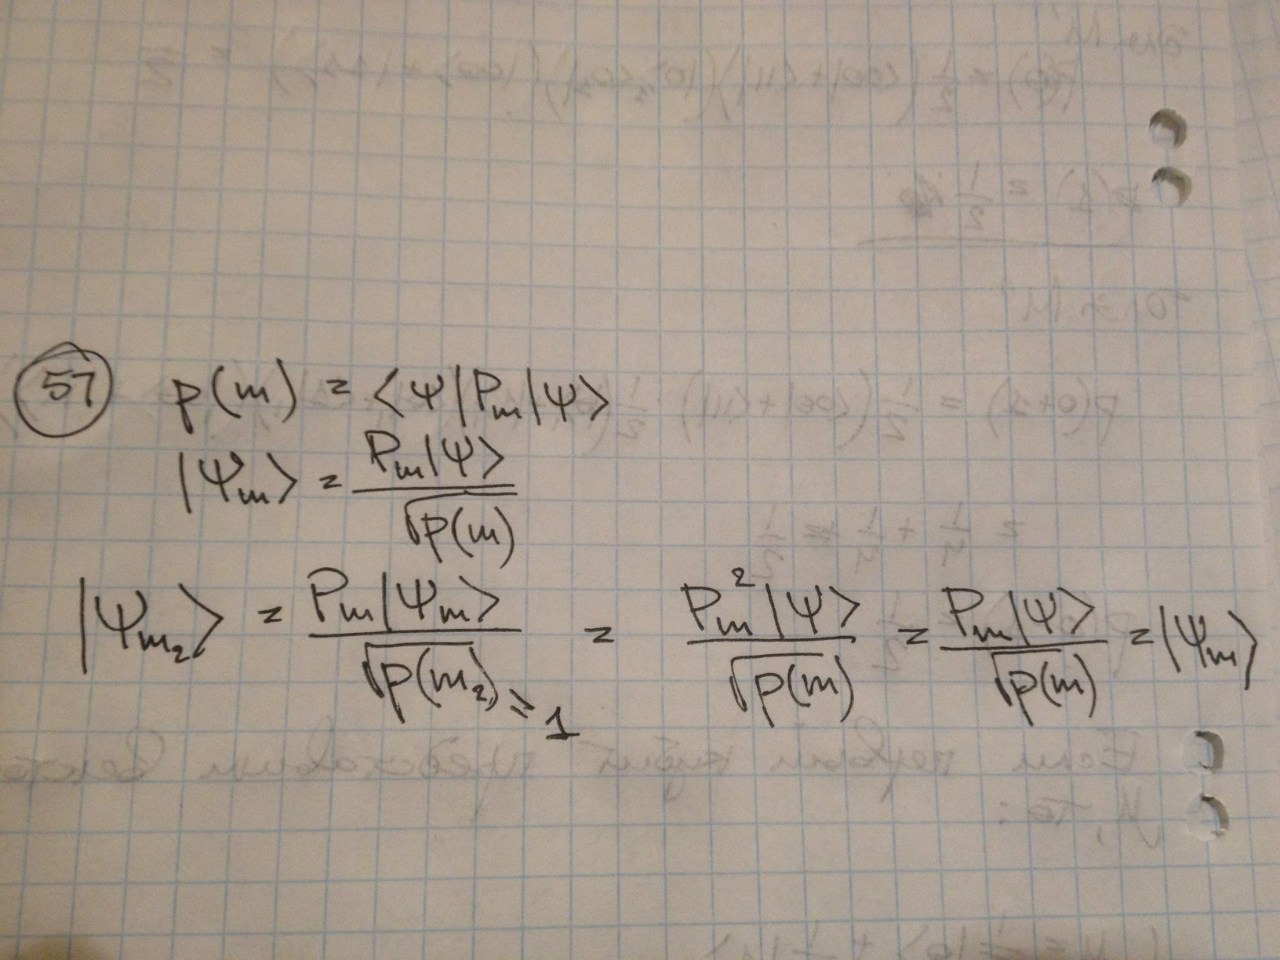 57 p(m) = ⟨Ψ|Pₘ|Ψ⟩
|Ψₘ⟩ = Pₘ|Ψ⟩ / √p(m)
|Ψₘ₂⟩ = Pₘ|Ψₘ⟩ / √p(m₂) = 1 = Pₘ²|Ψ⟩ / √p(m) = Pₘ|Ψ⟩ / √p(m) = |Ψₘ⟩